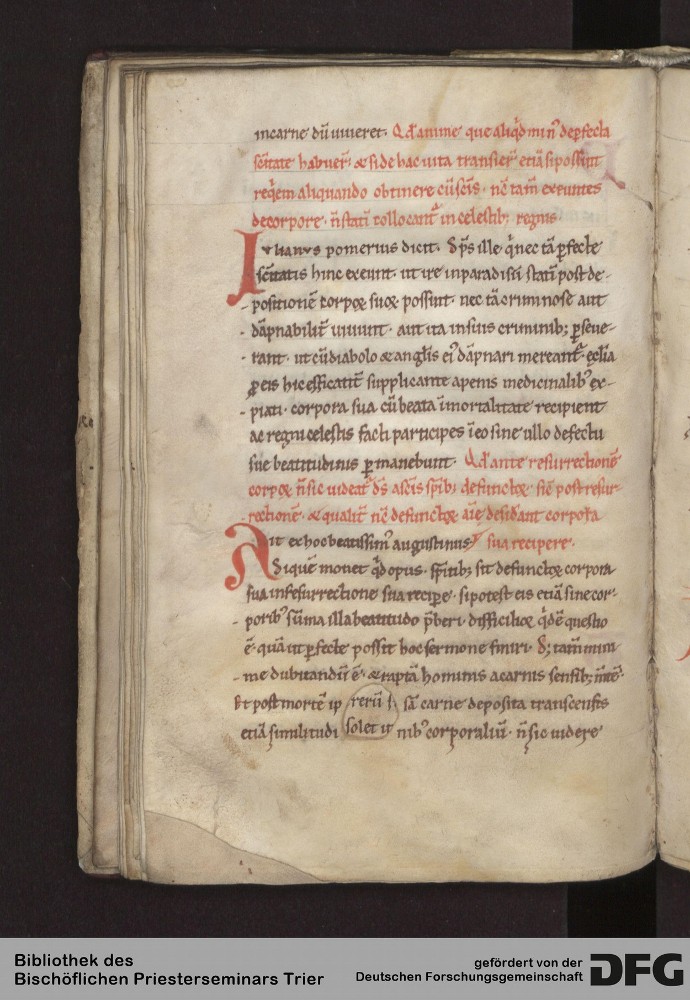 incarne dū uiueret. Qd' anime que aliqd min' de perfecta
scītate habuer̄. & si de hac uita transier̄ etiā si possint
req̄em aliquando obtinere cū scīs. n̄c tam̄ exeuntes
decorpore. n̄ statī collocant' in celestib; regnis.
Iulianus pomerius dicit. sp̄s ille. q̄ nec tā perfecte
scītatis hinc exeunt. ut ire in paradisū statī post de-
positionē corpoꝝ suoꝝ possunt. nec tā criminose aut
dāpnabilit' uiuunt. aut ita in suis criminib; pseue-
rant. ut cū diabolo & angl̄is ei' dāpnari mereant'. ęcl̄ia
ꝓ eis hic efficacit' supplicante apenis medicinalib' ex-
piati. corpora sua cū beata īmortalitate recipient
ac regni celestis facti participes ī eo sine ullo defectu
sue beatitudinis pmanebunt. Qd' ante resurrectionē
corpoꝝ n̄ sic uideat' ds̄ a scīs spīb; defunctoꝝ. sic̄ post resur-
rectionē. & qualit' nc̄ defunctoꝝ aīe desidant corpora
Ait ex hoc beatissim' augustinus sua recipere.
Si quē mouet qd opus. spītib; sit defunctoꝝ corpora
sua in resurrectione sua recipe. si potest eis etiā sine cor-
porib' sūma illa beatitudo p̄beri. difficilior q̄dē questio
ē. quā ut pfecte possit hoc sermone finiri. S; tam̄ mini-
me dubitandū ē. & raptā hominis acarnis sensib; mētē.
Et post mortē ip rerū sā carne deposita transcensis
etiā similitudi solet it nib' corporaliū. n̄ sic uidere
Bibliothek des
Bischöflichen Priesterseminars Trier
gefördert von der
Deutschen Forschungsgemeinschaft
DFG